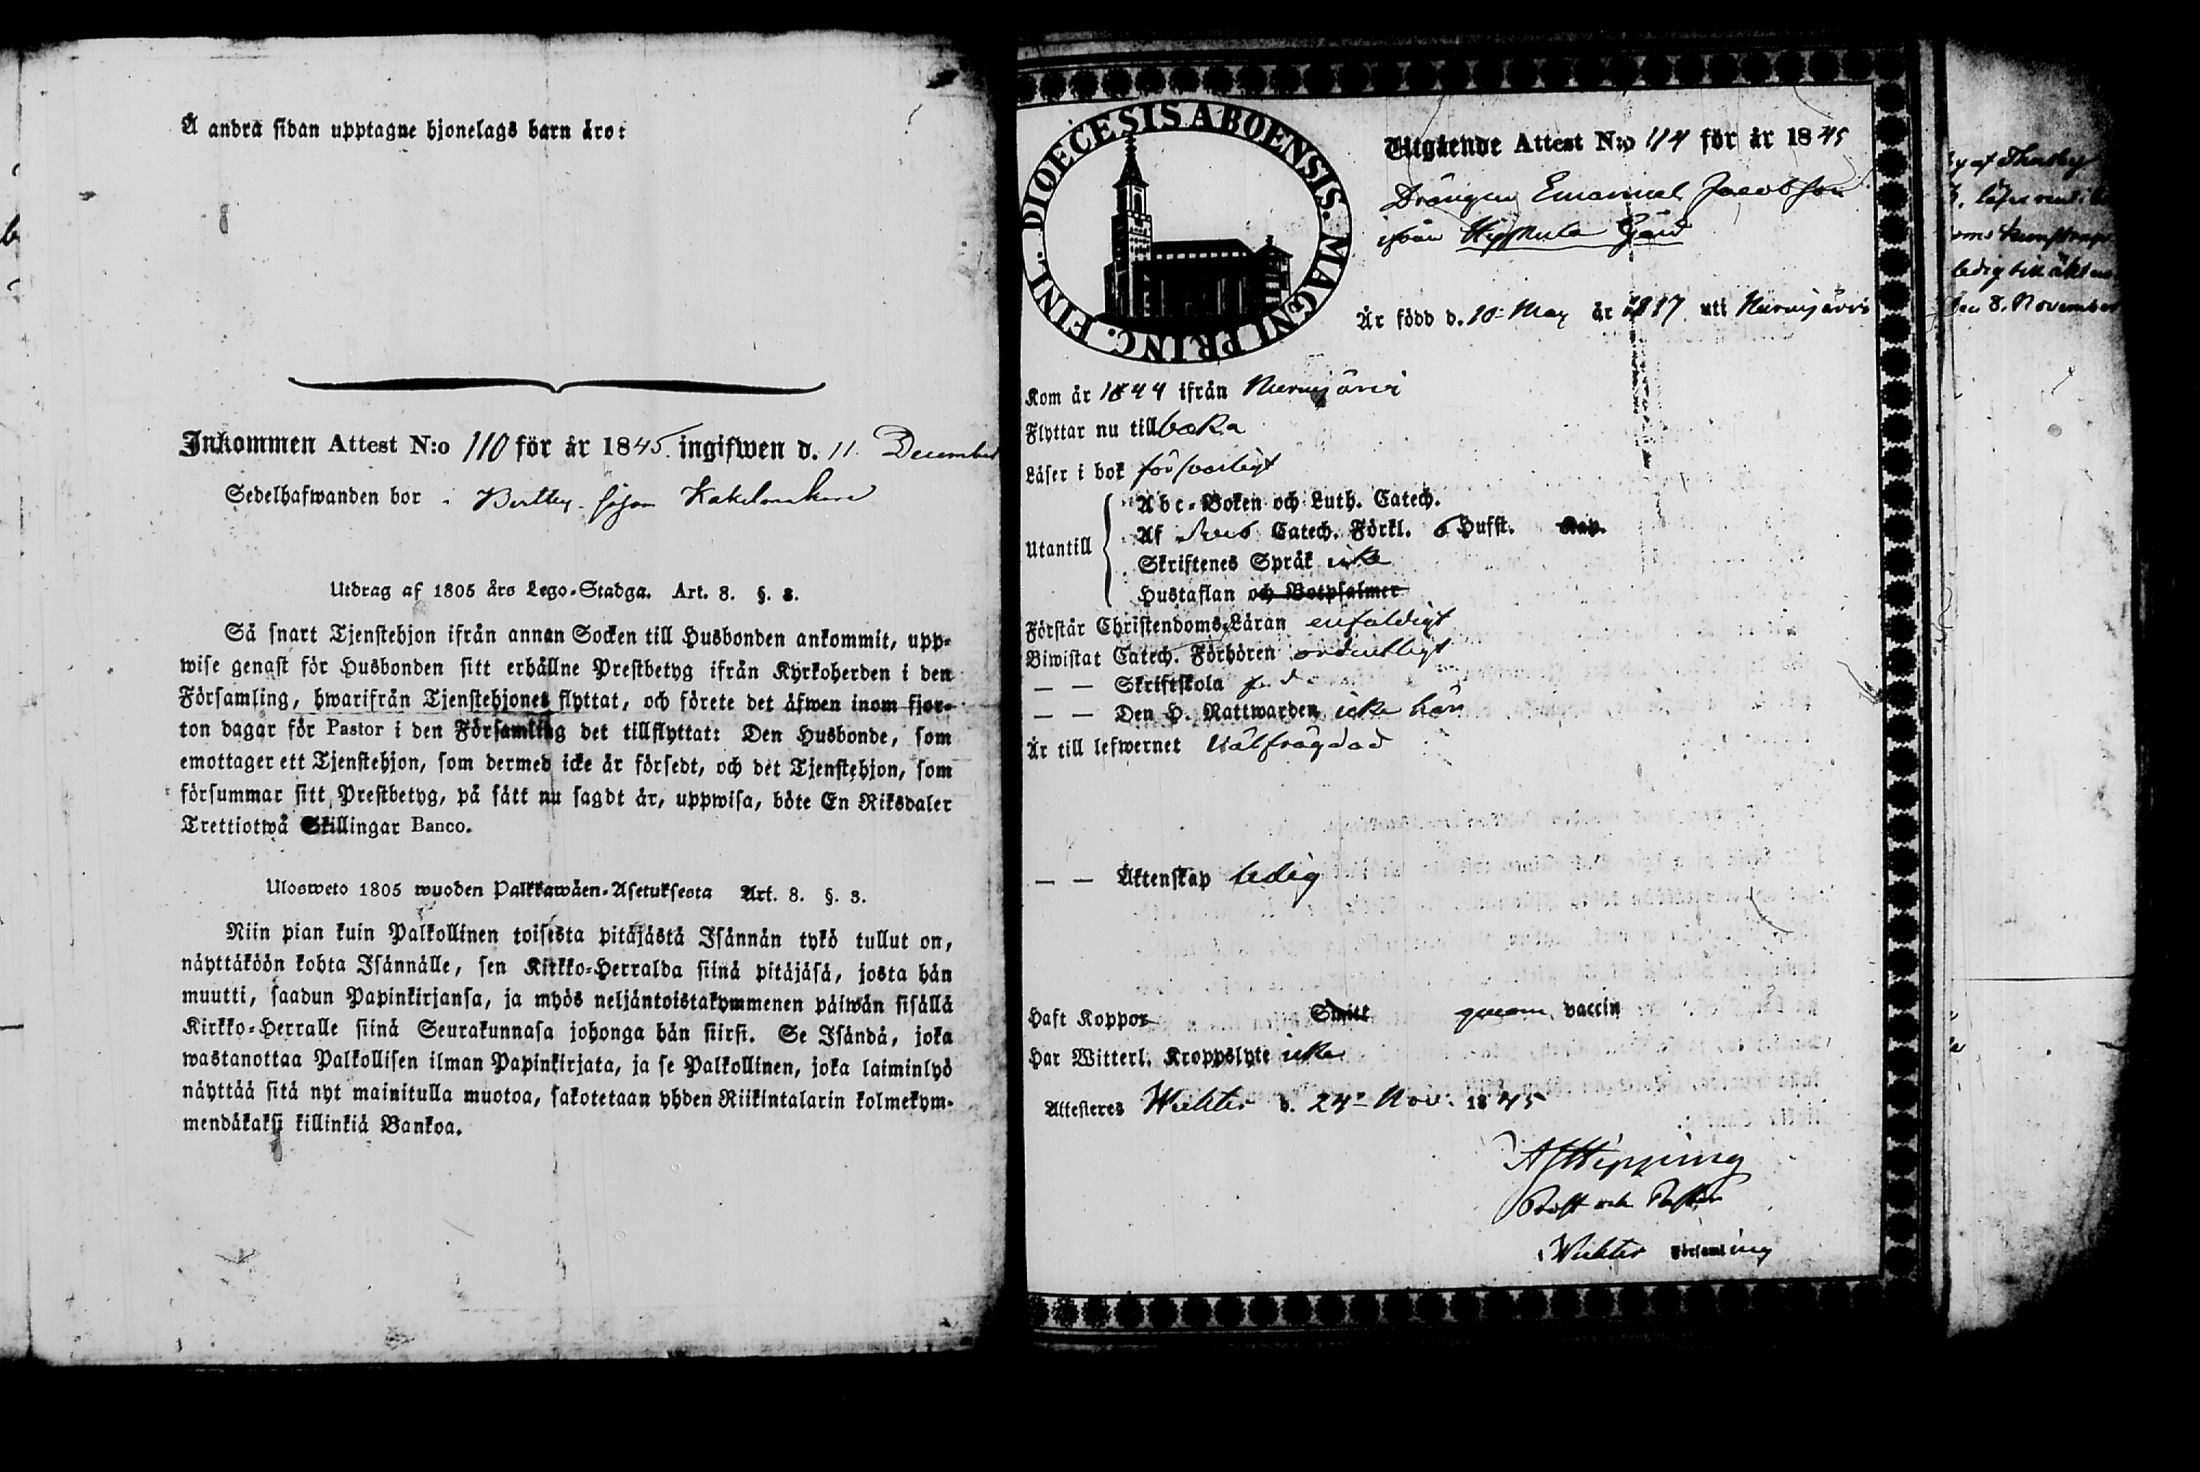 Å andra sidan upptagne hjonelags barn äro:
Inkommen Attest N:o 110 för år 1845. ingifwen d. 11. December
Sedelhafwanden bor i
Utdrag af 1805 års Lego-Stadga. Art. 8. §. 3.
Så snart Tjenstehjon ifrån annan Socken till Husbonden ankommit, upp-
wise genast för Husbonden sitt erhållne Prestbetyg ifrån Kyrkoherden i den
Församling, hwarifrån Tjenstehjonet flyttat, och förete det äfwen inom fjor-
ton dagar för Pastor i den Församling det tillflyttat: Den Husbonde, som
emottager ett Tjenstehjon, som dermed icke är försedt, och det Tjenstehjon, som
försummar sitt Prestbetyg, på sätt nu sagdt är, uppwisa, böte En Riksdaler
Trettiotwå Skillingar Banco.
Ulosweto 1805 wuoden Palkkawäen-Asetuksesta Art. 8. §. 3.
Niin pian kuin Palkollinen toisesta pitäjästä Isännän tykö tullut on,
näyttäköön kohta Isännälle, sen Kirkko-Herralda siinä pitäjäsä, josta hän
muutti, saadun Papinkirjansa, ja myös neljäntoistakymmenen päiwän sisällä
Kirkko-Herralle siinä Seurakunnasa johonga hän siirsi. Se Isändä, joka
wastanottaa Palkollisen ilman Papinkirjata, ja se Palkollinen, joka laiminlyö
näyttää sitä nyt mainitulla muotoa, sakotetaan yhden Riikintalarin kolmekym-
mendäkaksi killinkiä Bankoa.
DIOECESIS ABOENSIS. MAGNI PRINC. FINL.
Utgående Attest N:o 114 för år 1845
Drängen Emanuel Jacobsson
ifrån Gård
Är född d. 10 May år 1817 uti Nurmijärvi
Kom år 1844 ifrån Nurmijärvi
Flyttar nu tillbaka
Läser i bok försvarligt
Utantill
Abc-Boken och Luth. Catech.
Af Catech. Förkl. 6 Hufst. Kap.
Skriftenes Språk icke
Hustaflan och Botpsalmer
Förstår Christendoms-Läran enfaldigt
Biwistat Catech. Förhören ordentligt
— — Skriftskola
— — Den H. Nattwarden icke här
Är till lefwernet välfrägdad
— — Äktenskap ledig
Haft Koppor Smitt genom vaccin
Har Witterl. Kroppslyte icke
Attesteres Wichtis d. 24 Nov. 1845
Hipping
Prost och Pastor
i Wichtis Församling
ledig till
den 8. November